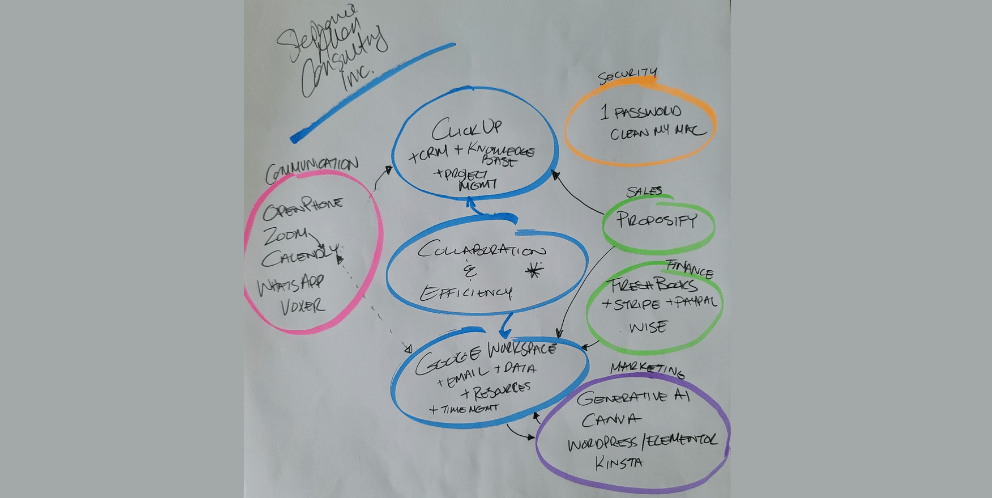 Stephanie
Allen
Consulting
Inc.
SECURITY
1 PASSWORD
CLEAN MY MAC
CLICKUP
+CRM + KNOWLEDGE
BASE
+PROJECT
MGMT
COMMUNICATION
OPENPHONE
ZOOM
CALENDLY
WHATSAPP
VOXER
SALES
PROPOSIFY
COLLABORATION
&
EFFICIENCY
*
FINANCE
FRESHBOOKS
+STRIPE +PAYPAL
WISE
GOOGLE WORKSPACE
+EMAIL +DATA
+RESOURCES
+TIME MGMT
MARKETING
GENERATIVE AI
CANVA
WORDPRESS/ELEMENTOR
KINSTA